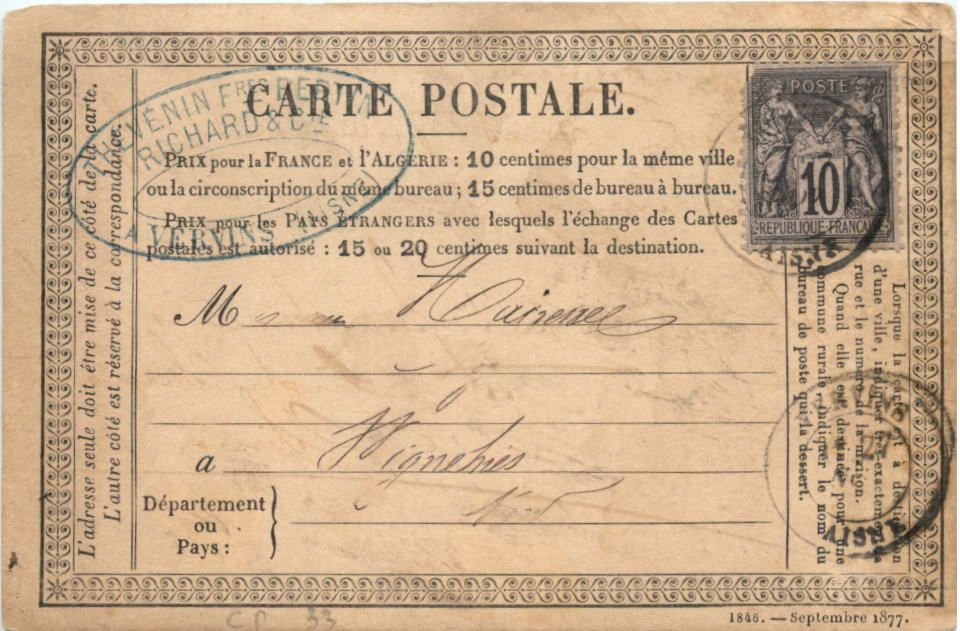 CARTE POSTALE.
THEVENIN FRES
RICHARD & CIE
A VERVINS (AISNE)
PRIX pour la FRANCE et l'ALGÉRIE : 10 centimes pour la même ville
ou la circonscription du même bureau ; 15 centimes de bureau à bureau.
PRIX pour les PAYS ÉTRANGERS avec lesquels l'échange des Cartes
postales est autorisé : 15 ou 20 centimes suivant la destination.
POSTE
10
REPUBLIQUE FRANCAISE
AISNE
L'adresse seule doit être mise de ce côté de la carte.
L'autre côté est réservé à la correspondance.
M
a Wignehies
Département
ou
Pays :
Nord
Lorsque la carte est à destination
d'une ville, indiquer très-exactement la
rue et le numéro de la maison.
Quand elle est destinée pour une
commune rurale, indiquer le nom du
bureau de poste qui la dessert.
AISNE
CP 33
1846. — Septembre 1877.